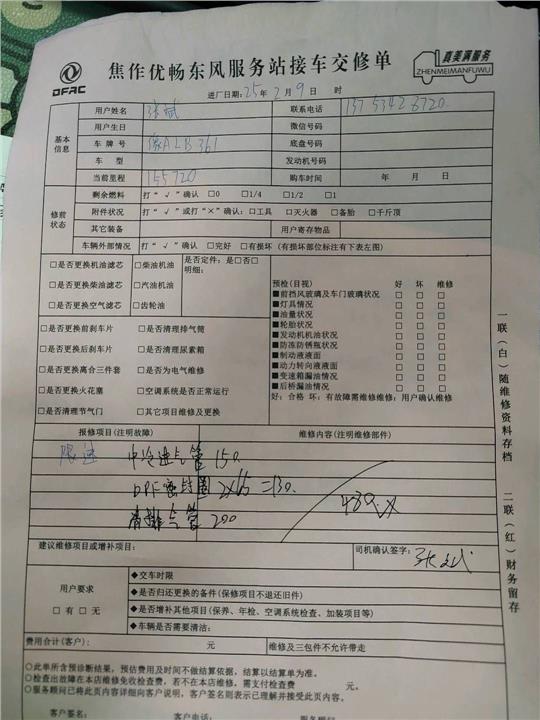 DFAC
焦作优畅东风服务站接车交修单
真美满服务
ZHENMEIMANFUWU
进厂日期：25年2月9日 时
基本信息
用户姓名 张斌 联系电话
用户生日 微信号码
车牌号 豫ALB361 底盘号码
车型 发动机号码
当前里程 155720 购车时间 年 月 日
修前状态
剩余燃料 打“√”确认 □0 □1/4 □1/2 □1
附件状况 打“√”或打“×”确认：□工具 □灭火器 □备胎 □千斤顶
其它装备 用户寄存物品
车辆外部情况 打“√”确认 □完好 □有损坏（有损坏部位标注有下表左图）
□是否更换机油滤芯 □柴油机油 是否定件：是□否□
□是否更换柴油滤芯 □汽油机油 明细：
□是否更换空气滤芯 □齿轮油
□是否更换前刹车片 □是否清理排气筒
□是否更换后刹车片 □是否清理尿素箱
□是否更换离合三件套 □是否为电气维修
□是否更换火花塞 □空调系统是否正常运行
□是否清理节气门 □其它项目维修及更换
预检(目视) 好 坏 维修
■前挡风玻璃及车门玻璃状况 □ □ □
■灯具情况 □ □ □
■油量状况 □ □ □
■轮胎状况 □ □ □
■发动机机油状况 □ □ □
■防冻防锈瓶状况 □ □ □
■制动液液面 □ □ □
■动力转向液液面 □ □ □
■变速箱漏油情况 □ □ □
■后桥漏油情况 □ □ □
好：合格 坏：有故障需维修维修；用户确认维修
报修项目(注明故障) 维修内容(注明维修部件)
限速 中冷进气管 150
DPF密封圈 2×65=130
消排气管 200
480
建议维修项目或增补项目： 司机确认签字：
用户要求
□有 □无
◆交车时限
◆是否归还更换的备件(保修项目不退还旧件)
◆是否增补其他项目(保养、年检、空调系统检查、加装项目等)
◆车辆是否需要清洁：
费用合计(客户)： 元 维修及三包件不允许带走
○此单所含预诊断结果，预估费用及时间不做结算依据，结算以结算单为准。
○检查出故障在本店维修免收检查费，若不在本店维修、需支付检查费 元。
○服务顾问已将此页内容详细向客户说明，客户签名则表示已理解并接受此页内容。
客户签名： 客户电话： 服务顾问：
一联（白）随维修资料存档 二联（红）财务留存